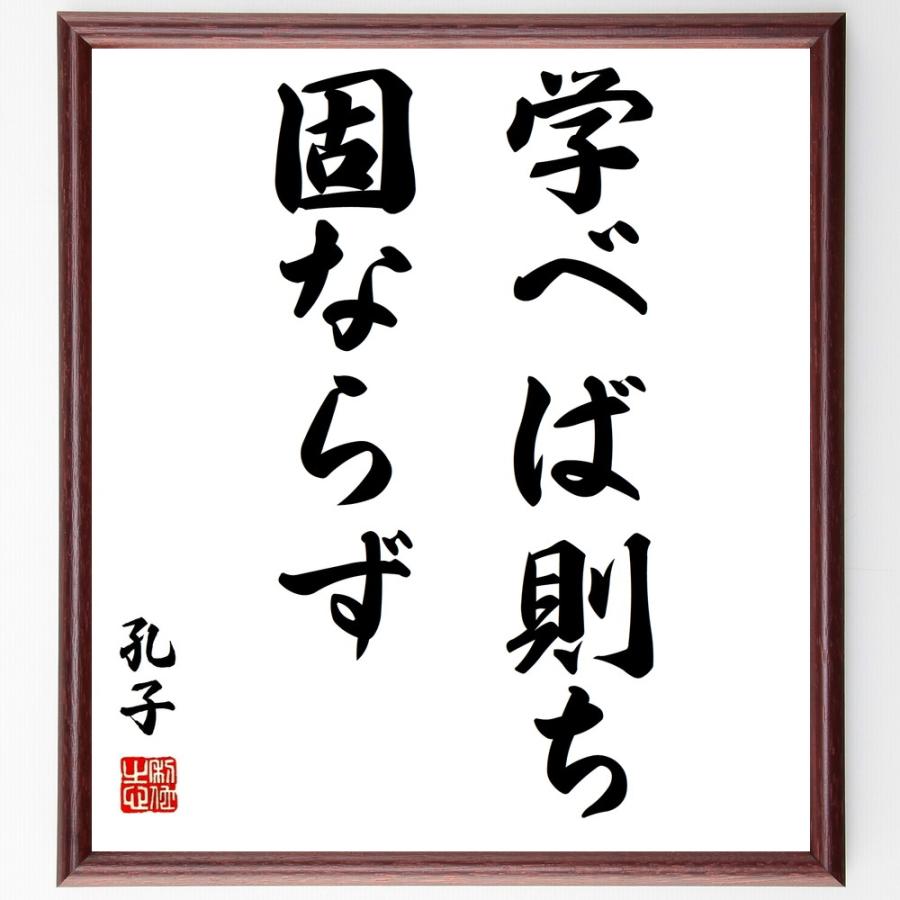 学べば則ち
固ならず
孔子